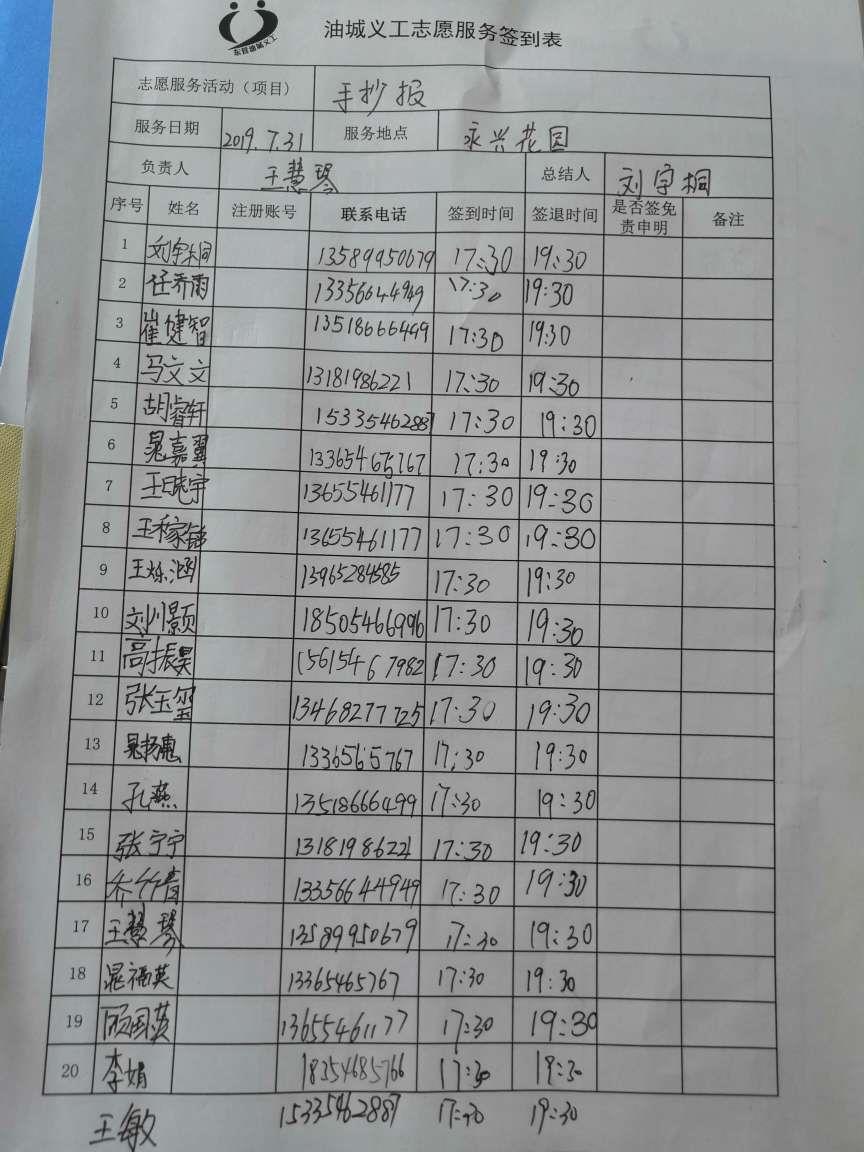 东营油城义工
油城义工志愿服务签到表
志愿服务活动（项目） 手抄报
服务日期 2019.7.31 服务地点 永兴花园
负责人 王慧琴 总结人 刘宇桐
序号 姓名 注册账号 联系电话 签到时间 签退时间 是否签免责申明 备注
1 刘宇桐 13589950679 17:30 19:30
2 任乔雨 13356644949 17:30 19:30
3 崔健智 13518666499 17:30 19:30
4 马文文 13181986221 17:30 19:30
5 胡睿轩 15335462887 17:30 19:30
6 晁嘉翼 13365465767 17:30 19:30
7 王晓宇 13655461177 17:30 19:30
8 王稼 13655461177 17:30 19:30
9 王烁涵 13965284585 17:30 19:30
10 刘川颢 18505466996 17:30 19:30
11 高振昊 15615467982 17:30 19:30
12 张玉玺 13468277725 17:30 19:30
13 晁扬惠 1336565767 17:30 19:30
14 孔燕 13518666499 17:30 19:30
15 张宁宁 13181986221 17:30 19:30
16 乔竹青 13356644949 17:30 19:30
17 王慧琴 13589950679 17:30 19:30
18 晁福英 13365465767 17:30 19:30
19 顾国英 13655461177 17:30 19:30
20 李娟 18354685766 17:30 19:30
王敏 15335462887 17:30 19:30